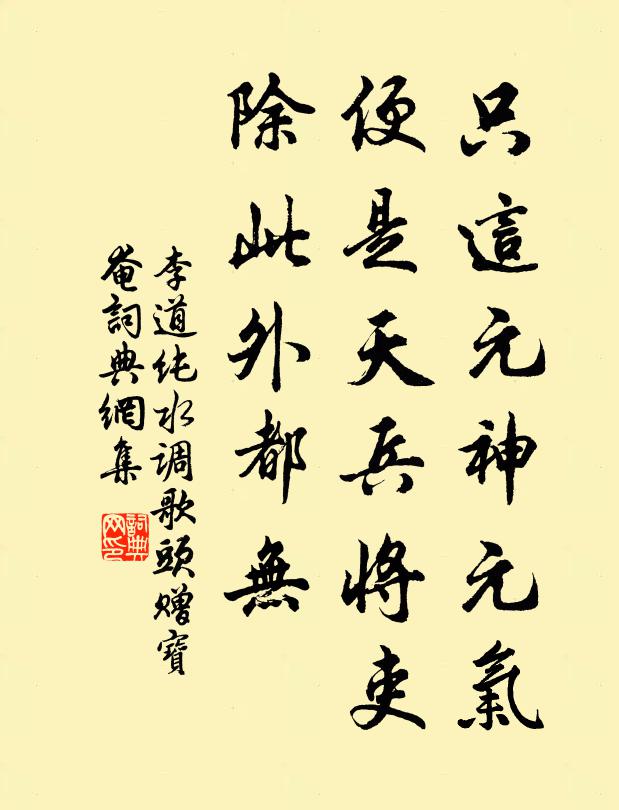 只這元神元氣
便是天兵將吏
除此外都無
李道纯水调歌頭赠寶
菴詞典網集
詞典网印